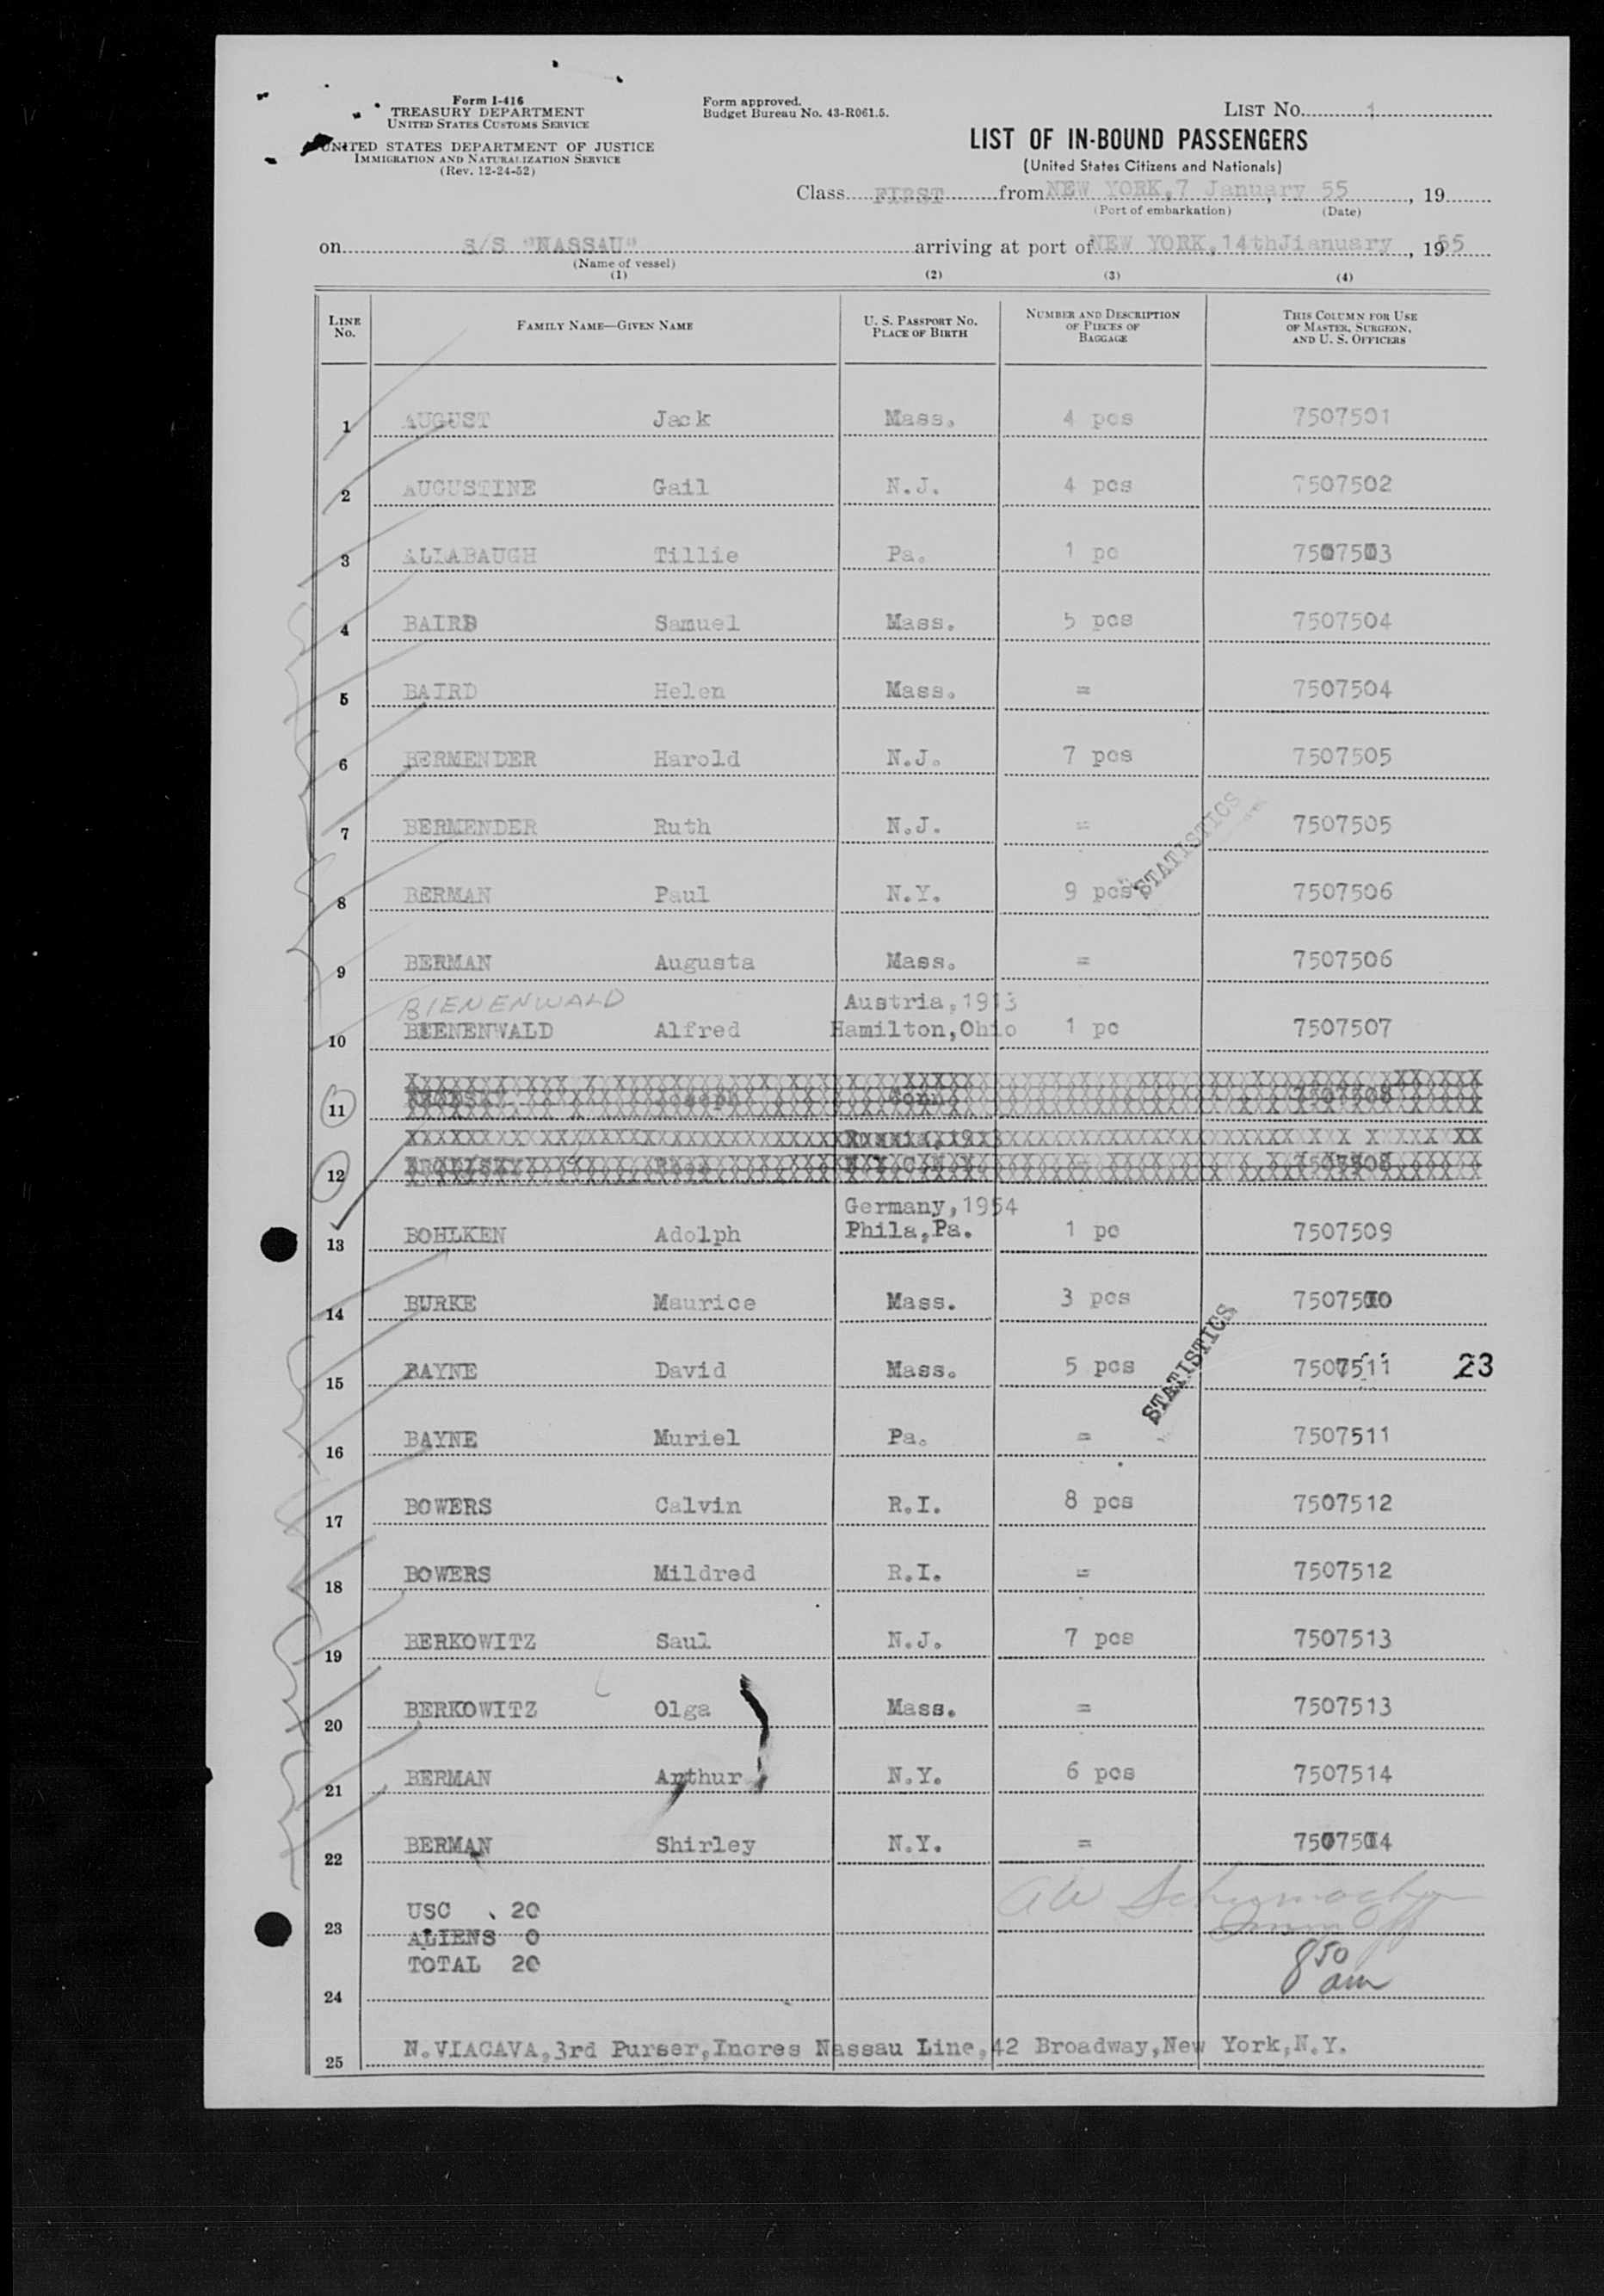 Form I-416
TREASURY DEPARTMENT
UNITED STATES CUSTOMS SERVICE
UNITED STATES DEPARTMENT OF JUSTICE
IMMIGRATION AND NATURALIZATION SERVICE
(Rev. 12-24-52)
Form approved.
Budget Bureau No. 43-R061.5.
LIST NO. 1
LIST OF IN-BOUND PASSENGERS
(United States Citizens and Nationals)
Class FIRST from NEW YORK, 7 January, 55, 19
(Port of embarkation) (Date)
on S/S "NASSAU" arriving at port of NEW YORK, 14thJianuary, 1955
(Name of vessel)
(1) (2) (3) (4)
LINE NO. FAMILY NAME—GIVEN NAME U. S. PASSPORT NO. PLACE OF BIRTH NUMBER AND DESCRIPTION OF PIECES OF BAGGAGE THIS COLUMN FOR USE OF MASTER, SURGEON, AND U. S. OFFICERS
1 AUGUST Jack Mass. 4 pcs 7507501
2 AUGUSTINE Gail N.J. 4 pcs 7507502
3 ALIABAUGH Tillie Pa. 1 pc 7507503
4 BAIRD Samuel Mass. 5 pcs 7507504
5 BAIRD Helen Mass. = 7507504
6 BERMENDER Harold N.J. 7 pcs 7507505
7 BERMENDER Ruth N.J. = 7507505
STATISTICS
8 BERMAN Paul N.Y. 9 pcs 7507506
9 BERMAN Augusta Mass. = 7507506
BIENENWALD Austria,1913
10 BUENENWALD Alfred Hamilton,Ohio 1 pc 7507507
11 Joseph Conn. 7507508
12 7507508
Germany,1954
13 BOHLKEN Adolph Phila,Pa. 1 pc 7507509
14 BURKE Maurice Mass. 3 pcs 7507510
STATISTICS
15 BAYNE David Mass. 5 pcs 7507511 23
16 BAYNE Muriel Pa. = 7507511
17 BOWERS Calvin R.I. 8 pcs 7507512
18 BOWERS Mildred R.I. = 7507512
19 BERKOWITZ Saul N.J. 7 pcs 7507513
20 BERKOWITZ Olga Mass. = 7507513
21 BERMAN Arthur N.Y. 6 pcs 7507514
22 BERMAN Shirley N.Y. = 7507514
USC 20
23 ALIENS 0
TOTAL 20
AW Schumacher
Imm Off
8 50 am
24
25 N.VIACAVA,3rd Purser,Incres Nassau Line,42 Broadway,New York,N.Y.